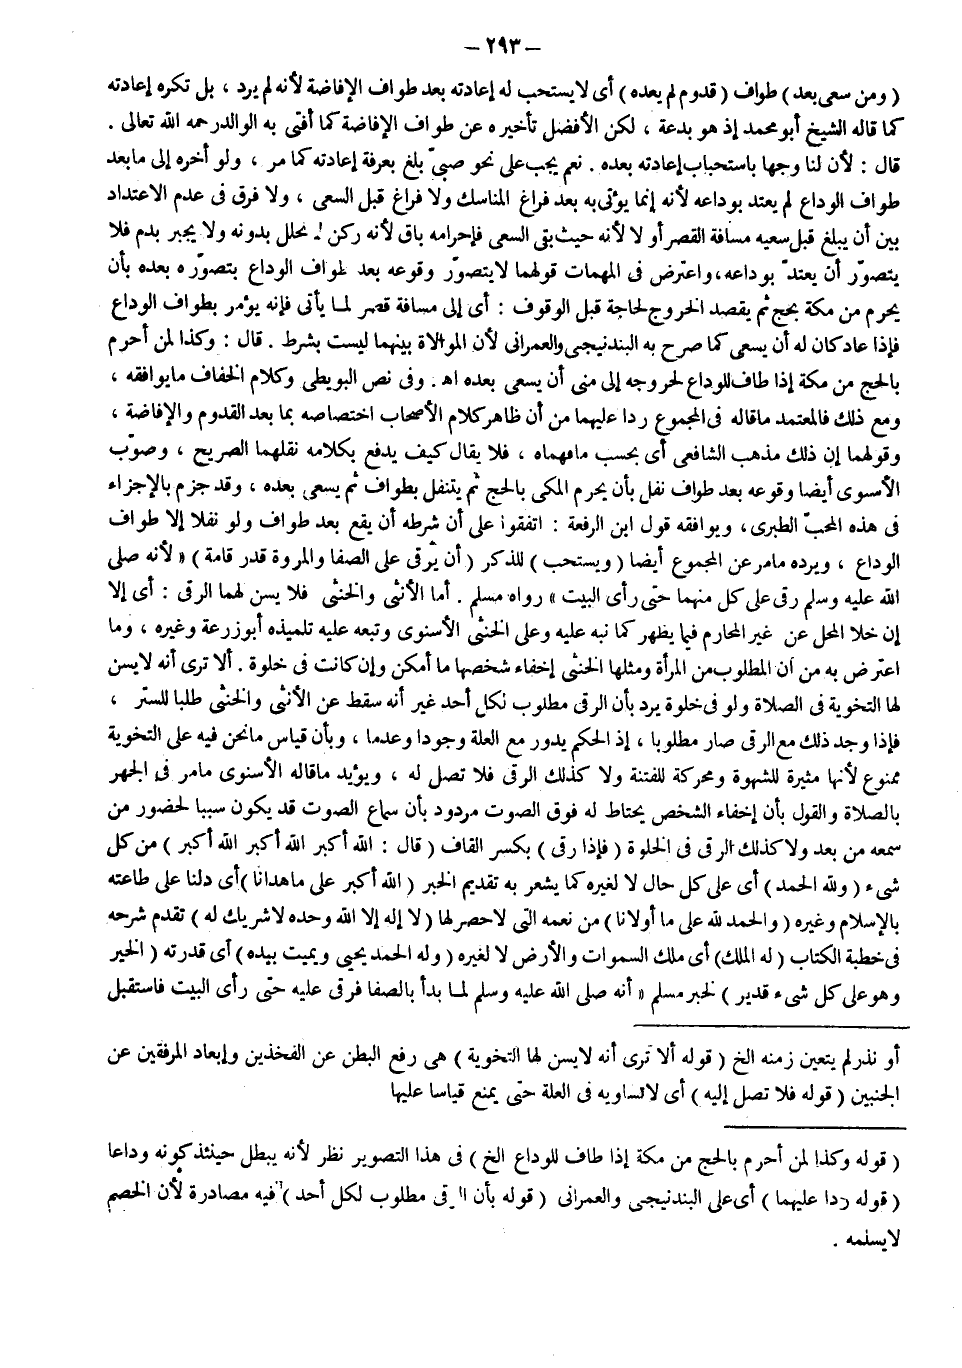 — ٢٩٣ —
( ومن سعى بعد ) طواف ( قدوم لم يعده ) أى لا يستحب له إعادته بعد طواف الإفاضة لأنه لم يرد ، بل تكره إعادته
كما قاله الشيخ أبو محمد إذ هو بدعة ، لكن الأفضل تأخيره عن طواف الإفاضة كما أفتى به الوالد رحمه الله تعالى .
قال : لأن لنا وجها باستحباب إعادته بعده . نعم يجب على نحو صبىّ بلغ بعرفة إعادته كما مر ، ولو أخره إلى مابعد
طواف الوداع لم يعتد بوداعه لأنه إنما يؤتى به بعد فراغ المناسك ولا فراغ قبل السعى ، ولا فرق فى عدم الاعتداد
بين أن يبلغ قبل سعيه مسافة القصر أو لا لأنه حيث بقى السعى فإحرامه باق لأنه ركن لا تحلل بدونه ولا يجبر بدم فلا
يتصوّر أن يعتدّ بوداعه ، واعترض فى المهمات قولهما لايتصوّر وقوعه بعد طواف الوداع بتصوّره بعده بأن
يحرم من مكة بحج ثم يقصد الخروج لحاجة قبل الوقوف : أى إلى مسافة قصر لما يأتى فإنه يؤمر بطواف الوداع
فإذا عاد كان له أن يسعى كما صرح به البندنيجى والعمرانى لأن الموالاة بينهما ليست بشرط . قال : وكذا لمن أحرم
بالحج من مكة إذا طاف للوداع لخروجه إلى منى أن يسعى بعده اهـ . وفى نص البويطى وكلام الخفاف مايوافقه ،
ومع ذلك فالمعتمد ماقاله فى المجموع ردا عليهما من أن ظاهر كلام الأصحاب اختصاصه بما بعد القدوم والإفاضة ،
وقولهما إن ذلك مذهب الشافعى أى بحسب مافهماه ، فلا يقال كيف يدفع بكلامه نقلهما الصريح ، وصوّب
الأسنوى أيضا وقوعه بعد طواف نفل بأن يحرم المكى بالحج ثم يتنفل بطواف ثم يسعى بعده ، وقد جزم بالإجزاء
فى هذه المحبّ الطبرى ، ويوافقه قول ابن الرفعة : اتفقوا على أن شرطه أن يقع بعد طواف ولو نفلا إلا طواف
الوداع ، ويرده مامر عن المجموع أيضا ( ويستحب ) للذكر ( أن يرقى على الصفا والمروة قدر قامة ) « لأنه صلى
الله عليه وسلم رقى على كل منهما حتى رأى البيت » رواه مسلم . أما الأنثى والخنثى فلا يسن لهما الرقى : أى إلا
إن خلا المحل عن غير المحارم فيما يظهر كما نبه عليه وعلى الخنثى الأسنوى وتبعه عليه تلميذه أبو زرعة وغيره ، وما
اعترض به من أن المطلوب من المرأة ومثلها الخنثى إخفاء شخصها ما أمكن وإن كانت فى خلوة . ألا ترى أنه لايسن
لها التخوية فى الصلاة ولو فى خلوة يرد بأن الرقى مطلوب لكل أحد غير أنه سقط عن الأنثى والخنثى طلبا للستر ،
فإذا وجد ذلك مع الرقى صار مطلوبا ، إذ الحكم يدور مع العلة وجودا وعدما ، وبأن قياس مانحن فيه على التخوية
ممنوع لأنها مثيرة للشهوة ومحركة للفتنة ولا كذلك الرقى فلا تصل له ، ويؤيد ماقاله الأسنوى مامر فى الجهر
بالصلاة والقول بأن إخفاء الشخص يحتاط له فوق الصوت مردود بأن سماع الصوت قد يكون سببا لحضور من
سمعه من بعد ولا كذلك الرقى فى الخلوة ( فإذا رقى ) بكسر القاف ( قال : الله أكبر الله أكبر الله أكبر ) من كل
شىء ( ولله الحمد ) أى على كل حال لا لغيره كما يشعر به تقديم الخبر ( الله أكبر على ماهدانا ) أى دلنا على طاعته
بالإسلام وغيره ( والحمد لله على ما أولانا ) من نعمه التى لاحصر لها ( لا إله إلا الله وحده لاشريك له ) تقدم شرحه
فى خطبة الكتاب ( له الملك ) أى ملك السموات والأرض لا لغيره ( وله الحمد يحيى ويميت بيده ) أى قدرته ( الخير
وهو على كل شىء قدير ) لخبر مسلم « أنه صلى الله عليه وسلم لما بدأ بالصفا فرقى عليه حتى رأى البيت فاستقبل
أو نذر لم يتعين زمنه الخ ( قوله ألا ترى أنه لايسن لها التخوية ) هى رفع البطن عن الفخذين وإبعاد المرفقين عن
الجنبين ( قوله فلا تصل إليه ) أى لاتساويه فى العلة حتى يمنع قياسا عليها
( قوله وكذا لمن أحرم بالحج من مكة إذا طاف للوداع الخ ) فى هذا التصوير نظر لأنه يبطل حينئذ كونه وداعا
( قوله ردا عليهما ) أى على البندنيجى والعمرانى ( قوله بأن الرقى مطلوب لكل أحد ) فيه مصادرة لأن الخصم
لايسلمه .